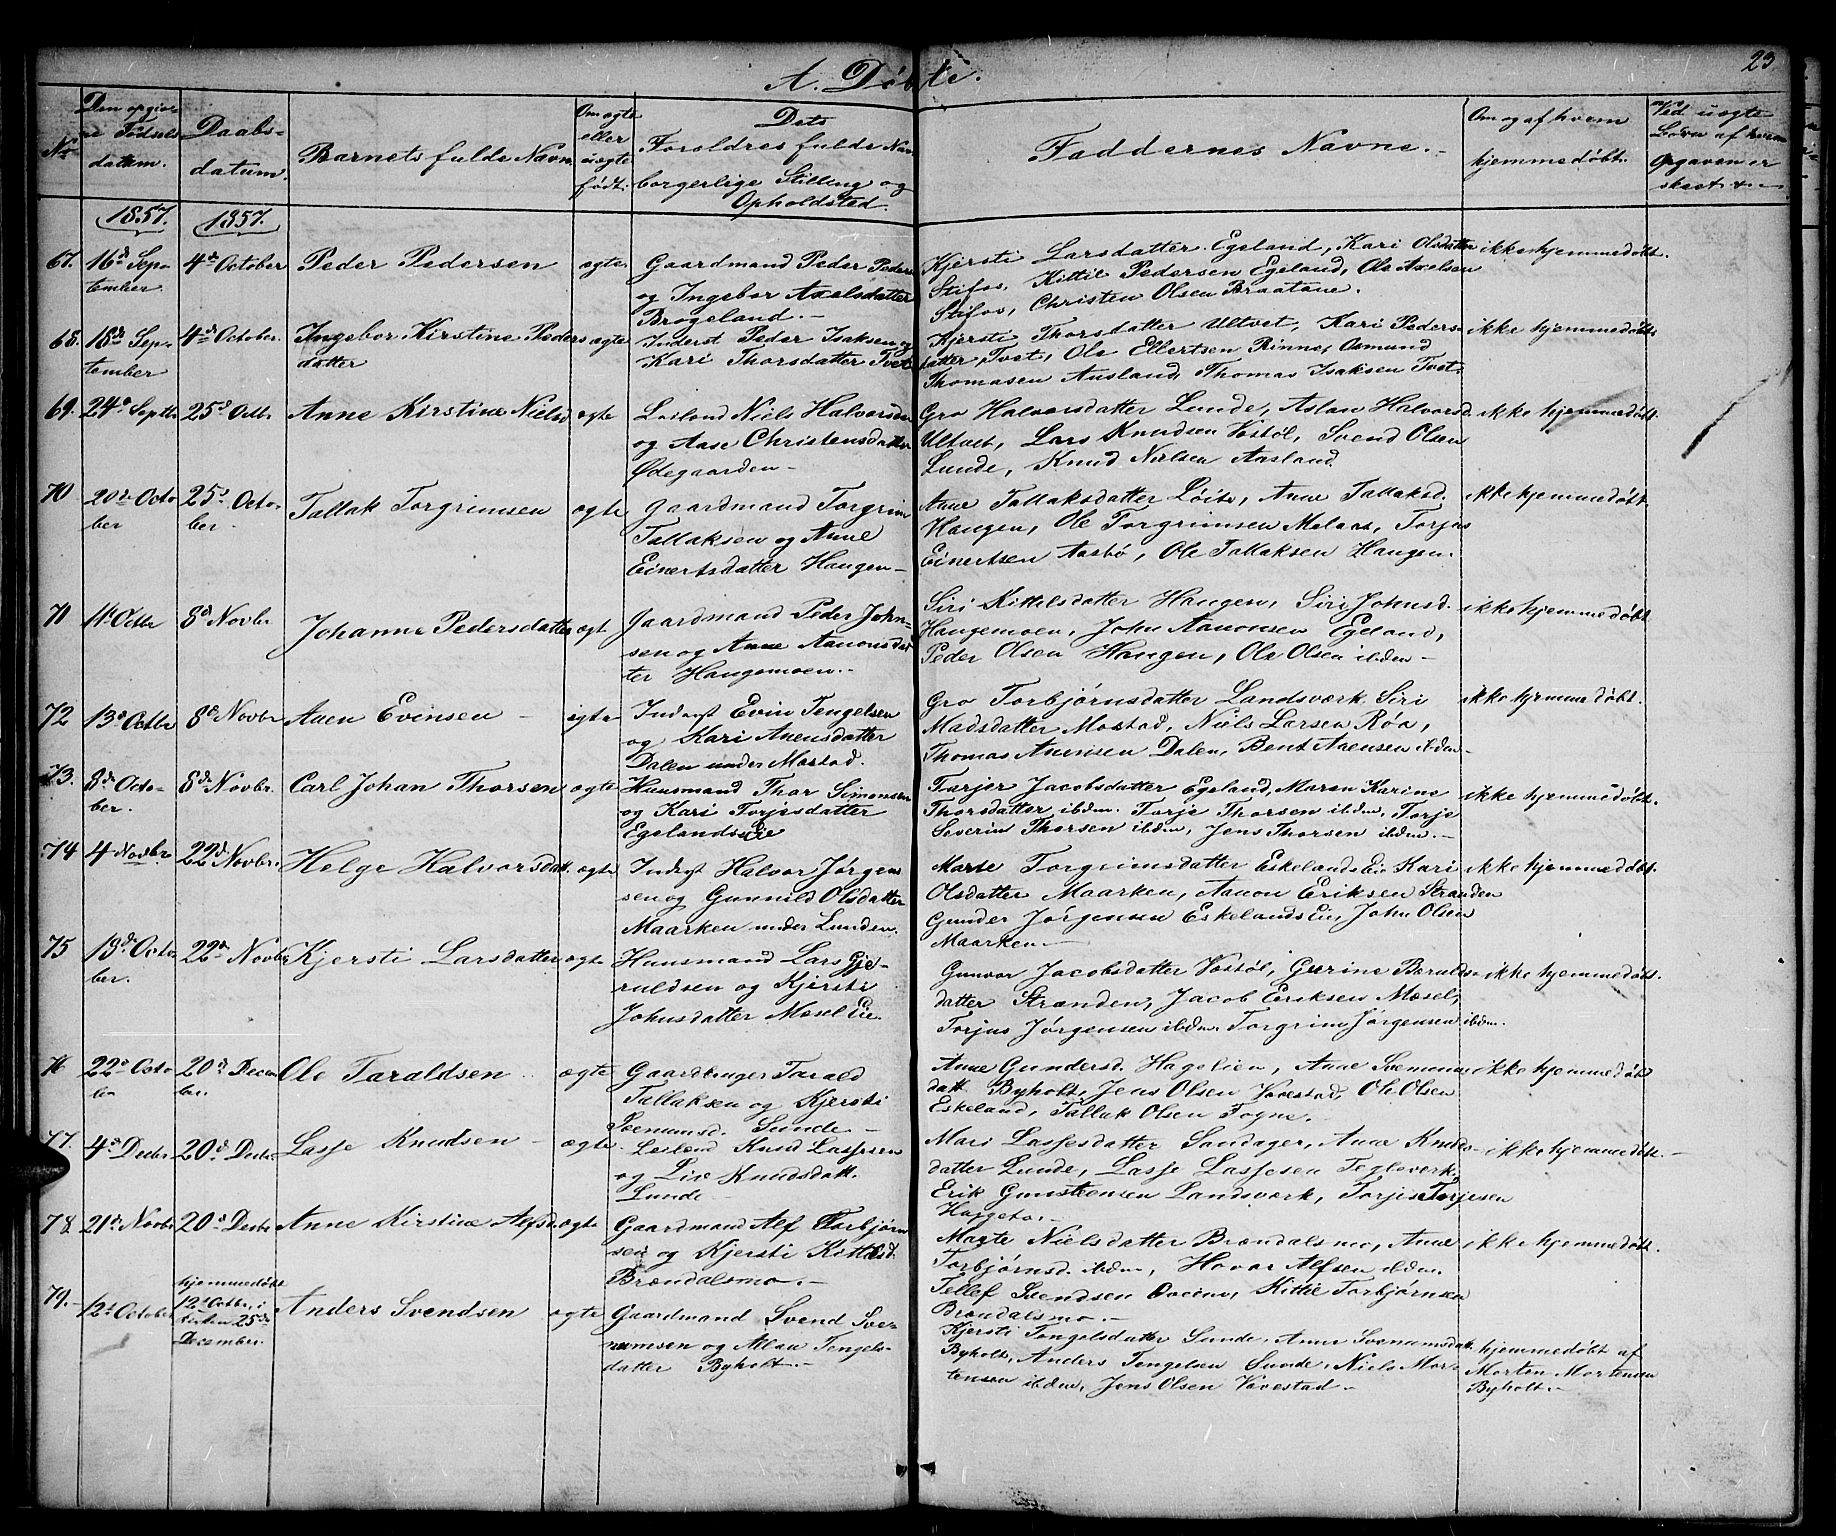 23
A. Døbte.
No
Den opgivne Fødselsdatum.
Daabsdatum.
Barnets fulde Navn
Om ægte eller uægte født.
Dets Foreldres fulde Navn borgerlige Stilling og Opholdsted.
Faddernes Navne.
Om og af hvem hjemmedøbt.
Ved uægte Børn af hvem Opgaven er skeet
1857. 1857.
67. 16d September
4d October
Peder Pedersen
ægte
Gaardmand Peder Peders
og Ingebor Axelsdatter
Brogeland.-
Kjersti Larsdatter Egeland, Kari Olsdatter
Stifos, Kittil Pedersen Egeland, Ole Axelsen
Stifos, Christen Olsen Braatane.
ikke hjemmedøbt.
68. 18d September
4d October.
Ingebor Kirstine Peders
datter
ægte
Inderst Peder Isaksen og
Kari Thorsdatter Tvet
Kjersti Thorsdatter Ultvet, Kari Peders
datter Tvet, Ole Ellertsen Rinne, Osmund
Thomasen Ausland, Thomas Isaksen Tvet.
ikke hjemmedøbt.
69. 24d Septbr
25d Octbr
Anne Kirstine Nielsd
ægte
Leilend Niels Halvorsen
og Aase Christensdatter
Ødegaarden-
Gro Halvorsdatter Lunde, Aslau Halvorsd
Ultvet, Lars Knudsen Vestøl, Svend Olsen
Lunde, Knud Nielsen Aasland.
ikke hjemmedøbt.
70 20d October
25d October.
Tallak Torgrimsen
ægte
Gaardmand Torgrim
Tallaksen og Anne
Einertsdatter Haugen-
Anne Tallaksdatter Løite, Anne Tallaksd.
Haugen, Ole Torgrimsen Melaas, Torjus
Einertsen Aasbø, Ole Tallaksen Haugen.
ikke hjemmedøbt.
71 11d Octbr
8d Novbr
Johanne Pedersdatter
ægte
Gaardmand Peder John-
sen og Anne Aanonsdat
ter Haugemoen.-
Siri Kittelsdatter Haugen, Siri Johnsd.
Haugemoen, John Aanonsen Egeland,
Peder Olsen Haugen, Ole Olsen ibden-
ikke hjemmedøbt
72 13d Octbr
8d Novbr
Anen Evinsen -
ægte
Inderst Evin Tengelsen
og Kari Anensdatter
Dalen under Mostad.
Gro Torbjørnsdatter Landsværk, Siri
Madsdatter Mostad, Niels Larsen Røa,
Thomas Anensen Dalen, Bent Anensen ibden-
ikke hjemmedøbt.
73. 8d October.
8d Novbr.
Carl Johan Thorsen
ægte
Huusmand Thor Simonsen
og Kari Torjesdatter
Egelandseie
Torjer Jacobsdatter Egeland, Maren Karine
Thorsdatter ibden. Torje Thorsen ibden, Torje
Severin Thorsen ibden, Jens Thorsen ibden.-
ikke hjemmedøbt.
74 4 Novbr
22d Novbr.
Helge Halvorsdatt.
ægte
Inderst Halvor Jørgen
sen og Gunnild Olsdatter
Maarken under Lunden.
Marte Torgrimsdatter Eskelands Eie Kari
Olsdatter Maarken, Aanon Eriksen Stranden
Gunder Jørgensen Eskelands Eie, John Olsen
Maarken.-
ikke hjemmedøbt.
75 13d October.
22d Novbr
Kjersti Larsdatter
ægte
Huusmand Lars Gje-
ruldsen og Kjersti
Johnsdatter Mæsel Eie.
Gunvor Jacobsdatter Vestøl, Gurine Beruld-
datter Stranden, Jacob Eriksen Mæsel,
Torjus Jørgensen ibden. Torgrim Jørgensen ibden.
ikke hjemmedøbt.
76 22d Octo
br
20d Decem
ber.
Ole Taraldsen
ægte
Gaardbruger Tarald
Tallaksen og Kjersti
Svenumsd. Lunde -
Anne Gundersd. Hagelien, Anne Svenums
datt. Byholt, Jens Olsen Vovestad, Ole Olsen
Eskeland, Tallak Olsen Togne.
ikke hjemmedøbt
77. 4d Decbr
20d Decbr
Lasse Knudsen -
ægte
Leilend Knud Lassesen
og Live Knudsdatt.
Lunde-
Mari Lassesdatter Sandager, Anne Knuds-
datter Lunde, Lasse Lassesen Tegleverk,
Erik Gunstensen Landsværk, Torjus Torjesen
Haggeto.-
ikke hjemmedøbt.-
78 21d Novbr
20d Decbr
Anne Kirstine Alfsd.
ægte
Gaardmand Alf Torbjørn
sen og Kjersti Kittelsd.
Brændalsmo.-
Magte Nielsdatter Brændalsmo, Anne
Torbjørnsd. ibden, Hovar Alfsen ibden.
Tellef Svendsen Oveino, Kittil Torbjørnsen
Brændalsmo.-
ikke hjemmedøbt.
79.- 12d October
hjemmedøbt
12d Octbr. i
Kirken 25de
December.
Anders Svendsen
ægte
Gaardmand Svend Sve-
numsen og Alau Tengels-
datter Byholt.-
Kjersti Tengelsdatter Lunde, Anne Svenumsdatt
Byholt, Anders Tengelsen Lunde, Niels Mor-
tensen ibden, Jens Olsen Vovestad-
hjemmedøbt af
Morten Mortensen
Byholt.-